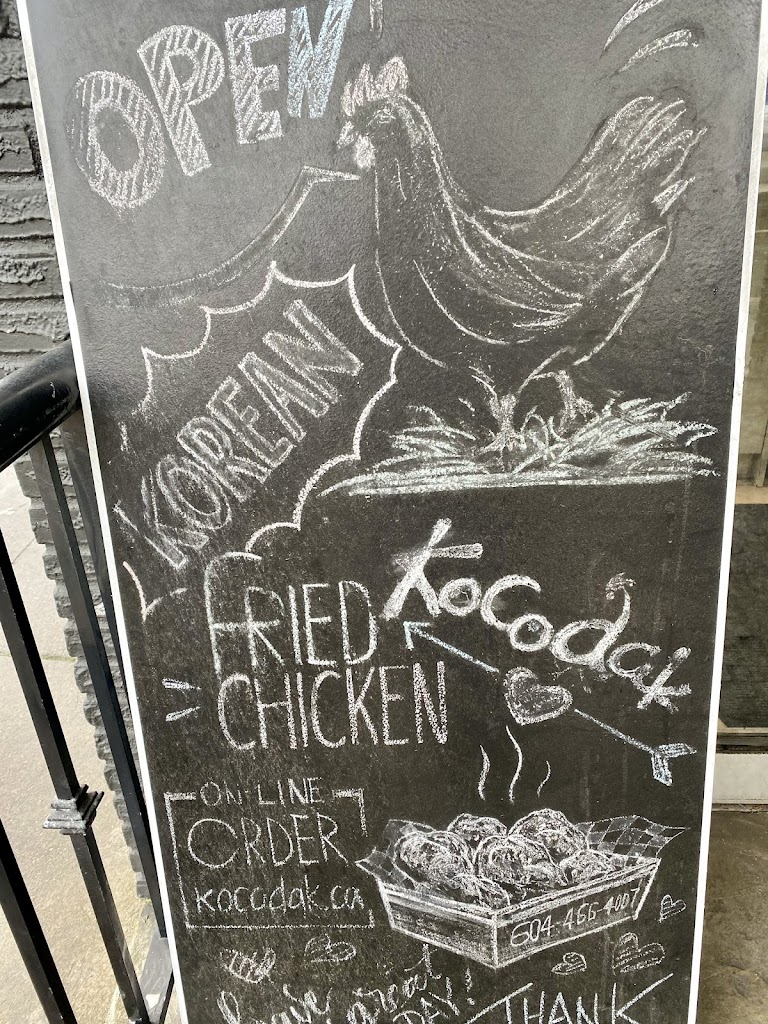 OPEN
KOREAN
FRIED
CHICKEN
Kocodak
ON-LINE
ORDER
kocodak.ca
604-466-4007
have a great
DAY!
THANK